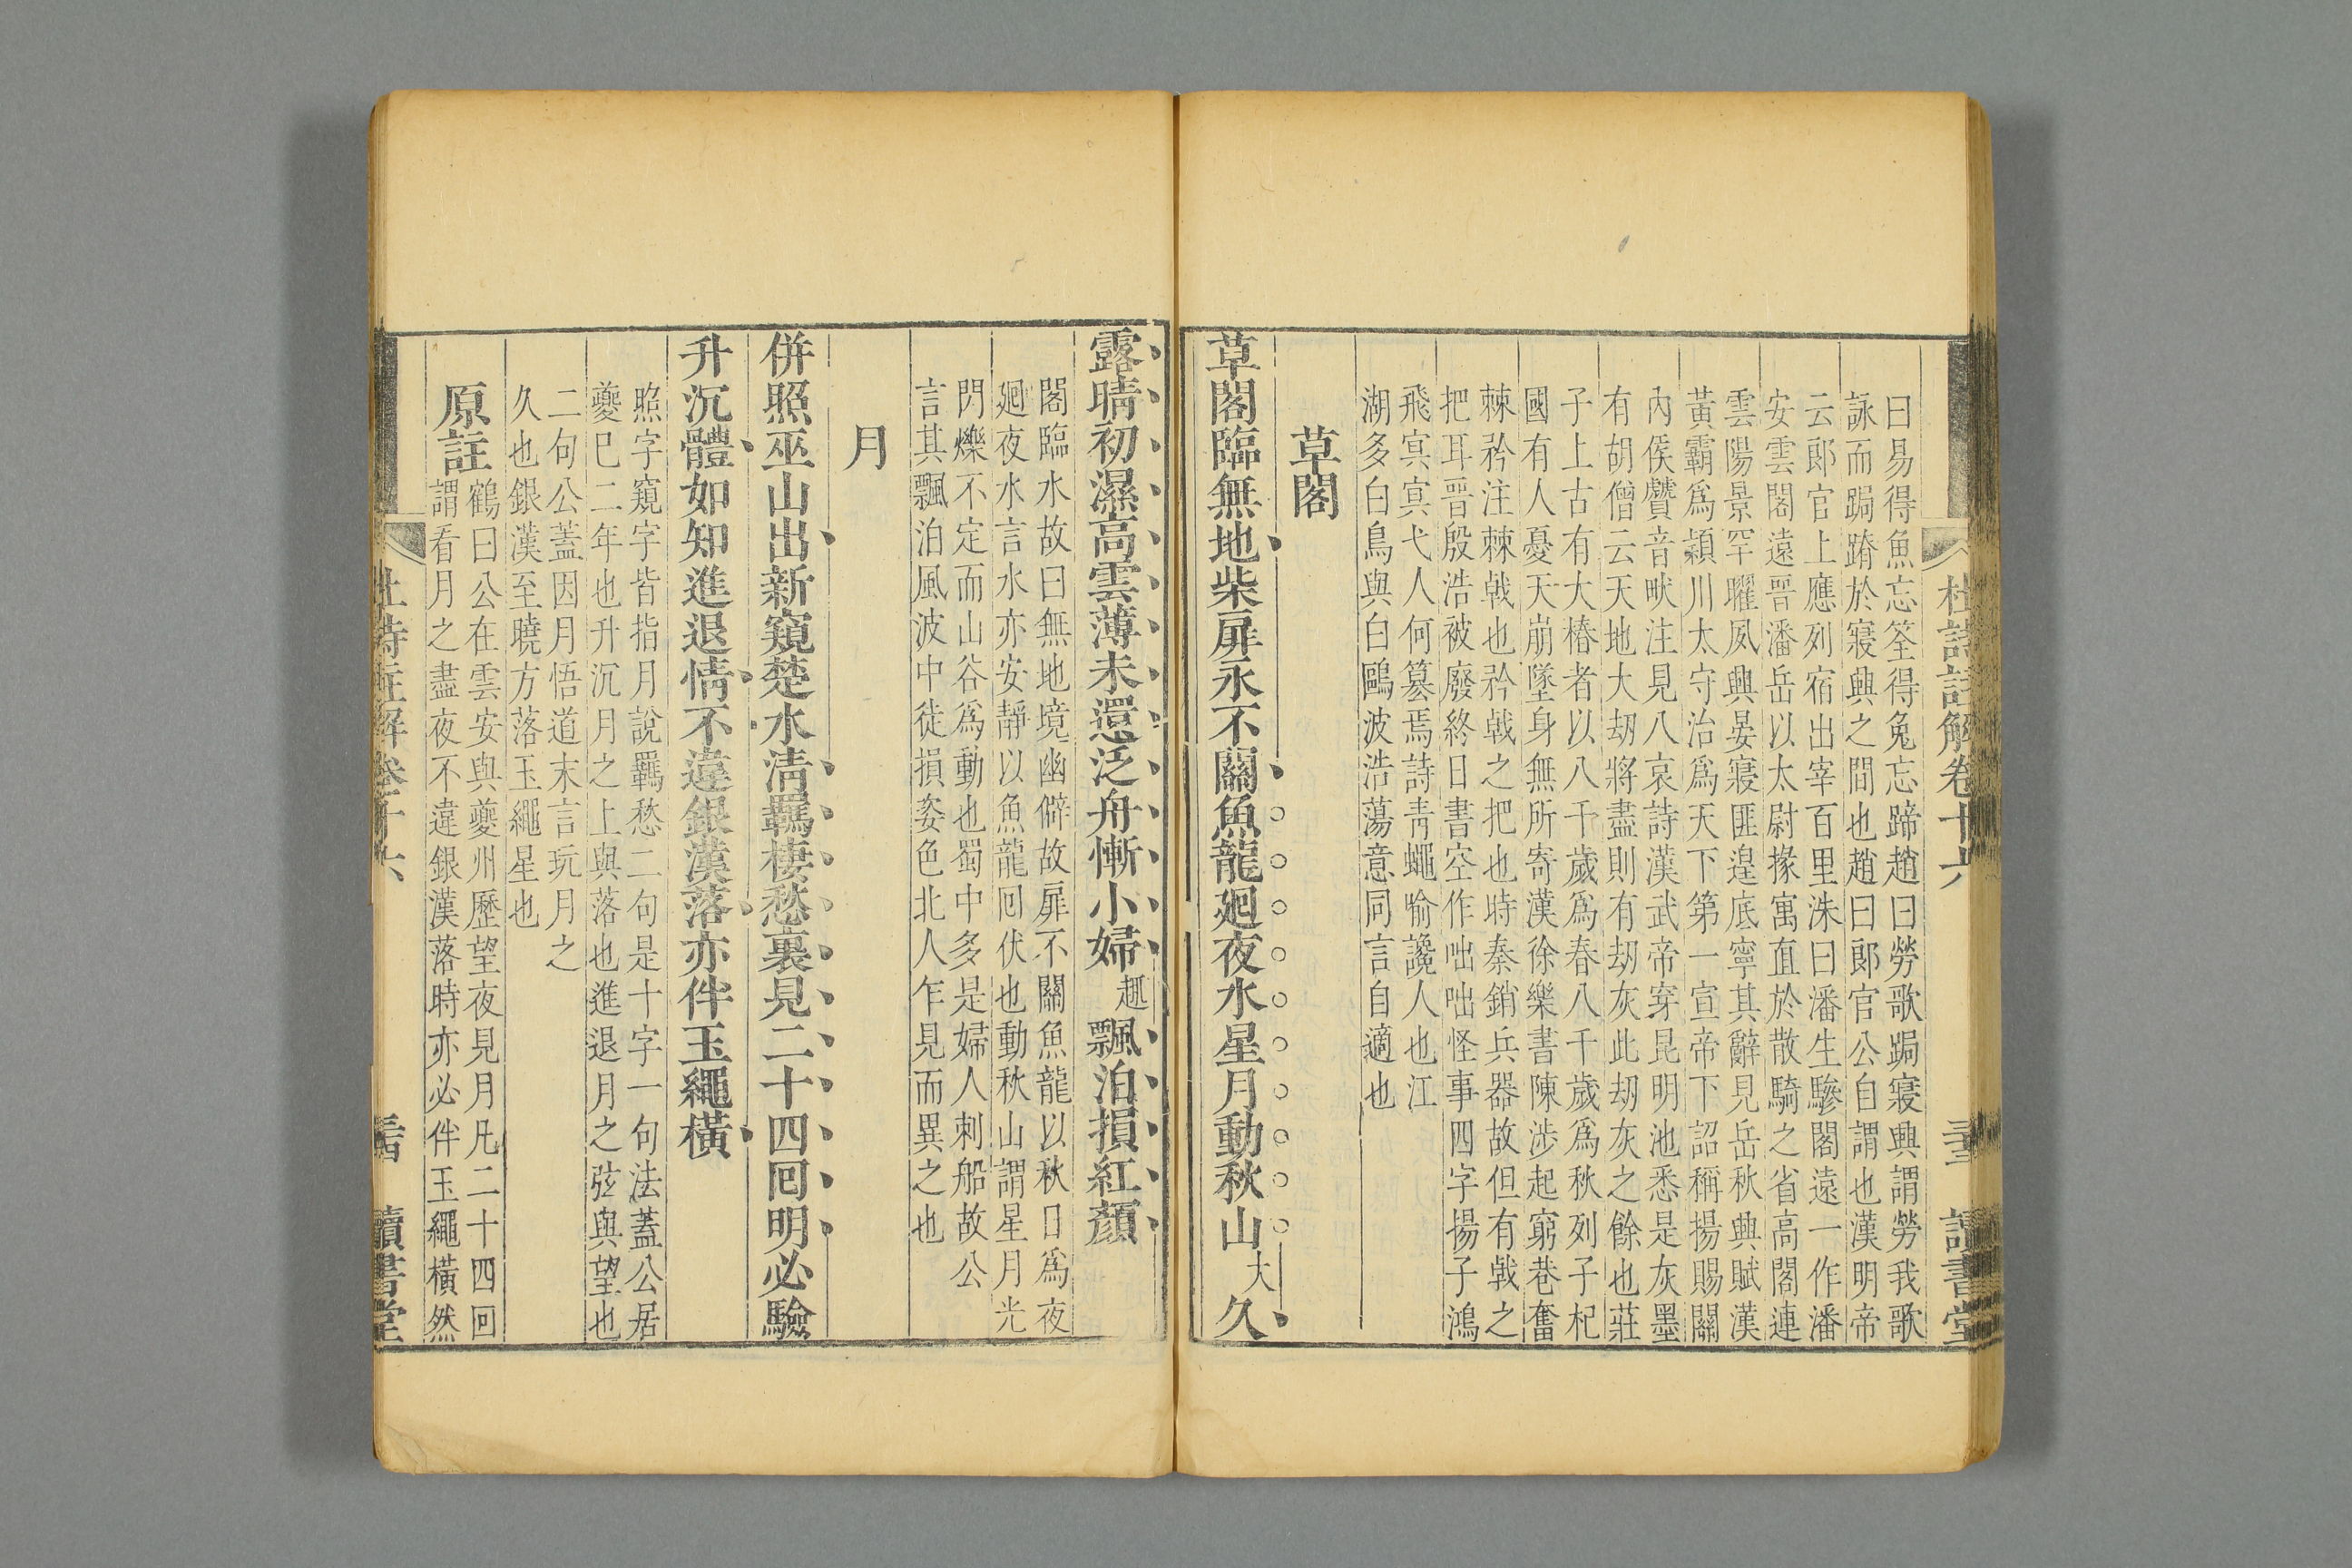 杜詩註解卷十六 讀書堂
曰易得魚忘筌得兔忘蹄趙曰勞歌跼寢興謂勞我歌
詠而跼蹐於寢興之間也趙曰郞官公自謂也漢明帝
云郞官上應列宿出宰百里洙曰潘生驂閣遠一作潘
安雲閣遠晉潘岳以太尉掾寓直於散騎之省高閣連
雲陽景罕曜夙興晏寢匪遑底寧其辭見岳秋興賦漢
黃霸爲潁川太守治爲天下第一宣帝下詔稱揚賜關
內侯贊音畎注見八哀詩漢武帝穿昆明池悉是灰墨
有胡僧云天地大刼將盡則有刼灰此刼灰之餘也莊
子上古有大椿者以八千歲爲春八千歲爲秋列子杞
國有人憂天崩墜身無所寄漢徐樂書陳涉起窮巷奮
棘矜注棘戟也矜戟之把也時秦銷兵器故但有戟之
把耳晉殷浩被廢終日書空作咄咄怪事四字揚子鴻
飛冥冥弋人何篡焉詩靑蠅喻讒人也江
湖多白鳥與白鷗波浩蕩意同言自適也
草閣
草閣臨無地柴扉永不關魚龍廻夜水星月動秋山大久
露晴初濕高雲薄未還泛舟慚小婦趣飄泊損紅顏
閣臨水故曰無地境幽僻故扉不關魚龍以秋日爲夜
廻夜水言水亦安靜以魚龍囘伏也動秋山謂星月光
閃爍不定而山谷爲動也蜀中多是婦人刺船故公
言其飄泊風波中徒損姿色北人乍見而異之也
月
併照巫山出新窺楚水淸羈棲愁裏見二十四囘明必驗
升沉體如知進退情不違銀漢落亦伴玉繩橫
照字窺字皆指月說羈愁二句是十字一句法蓋公居
夔已二年也升沉月之上與落也進退月之弦與望也
二句公蓋因月悟道末言玩月之
久也銀漢至曉方落玉繩星也
原註鶴曰公在雲安與夔州歷望夜見月凡二十四回
謂看月之盡夜不違銀漢落時亦必伴玉繩橫然
杜詩註解卷十六 讀書堂